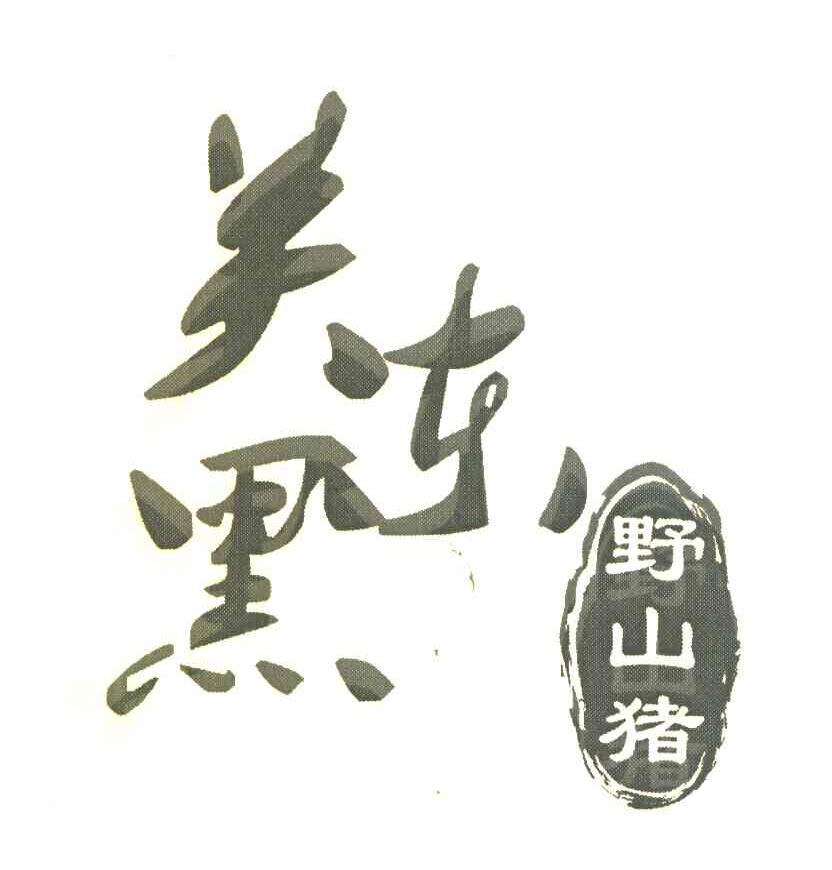 关东黑
野山猪